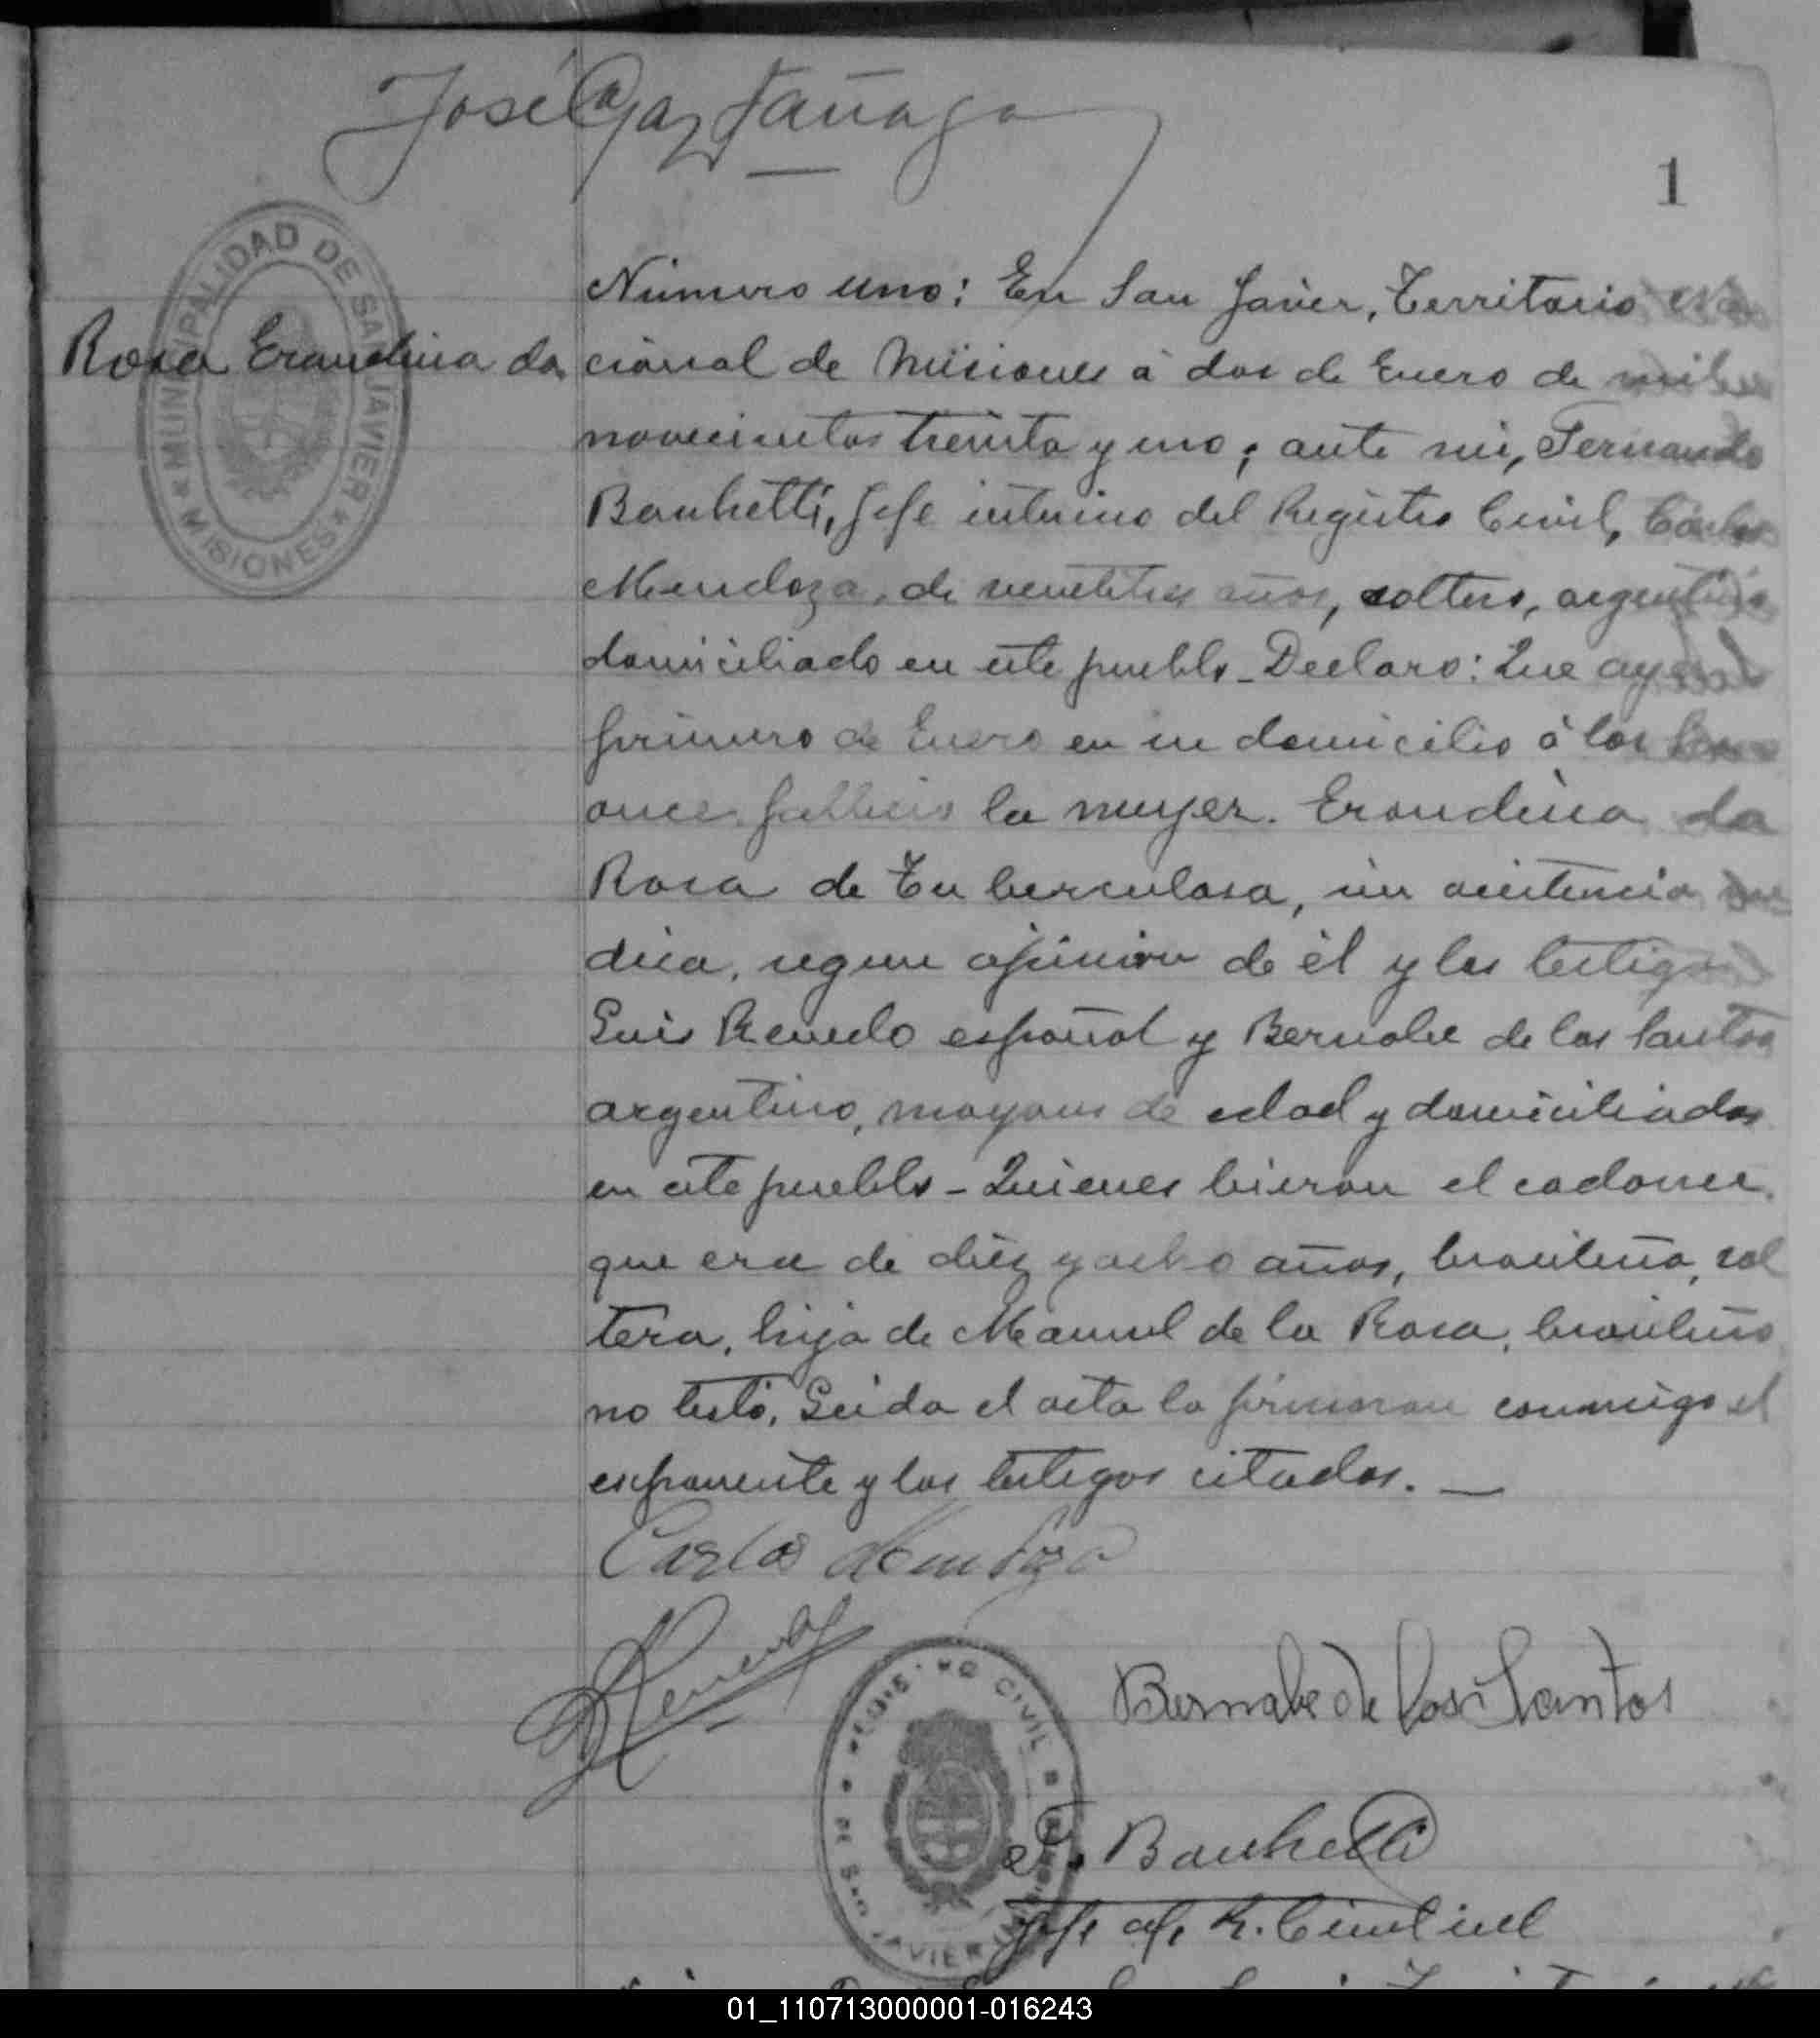 José Gaztañaga
1
MUNICIPALIDAD DE SAN JAVIER
MISIONES
Rosa Erandina da
Número uno: En San Javier, Territorio na
cional de Misiones á dos de Enero de mil
novecientos treinta y uno; ante mi, Fernando
Banhetti, Jefe interino del Registro Civil, Carlos
Mendoza, de veintitres años, soltero, argentino
domiciliado en este pueblo - Declaro: Que ayer
primero de Enero en su domicilio á las
once fallecio la mujer. Erondina da
Rosa de Tuberculosa, sin asistencia me
dica, segun opinion de él y los testigos
Luis Renedo español y Bernabe de los Santos
argentino, mayores de edad y domiciliados
en este pueblo - Quienes bieron el cadaver
que era de diez y ocho años, brasileña, sol
tera, hija de Manuel de la Rosa, brasileño
no testó. Leida el acta la firmaron conmigo el
exponente y los testigos citados. —
Carlos Mendoza
Renedo
Bernabe de los Santos
REGISTRO CIVIL
DE SAN JAVIER
F. Banhetti
Jefe R. Civil
01_110713000001-016243